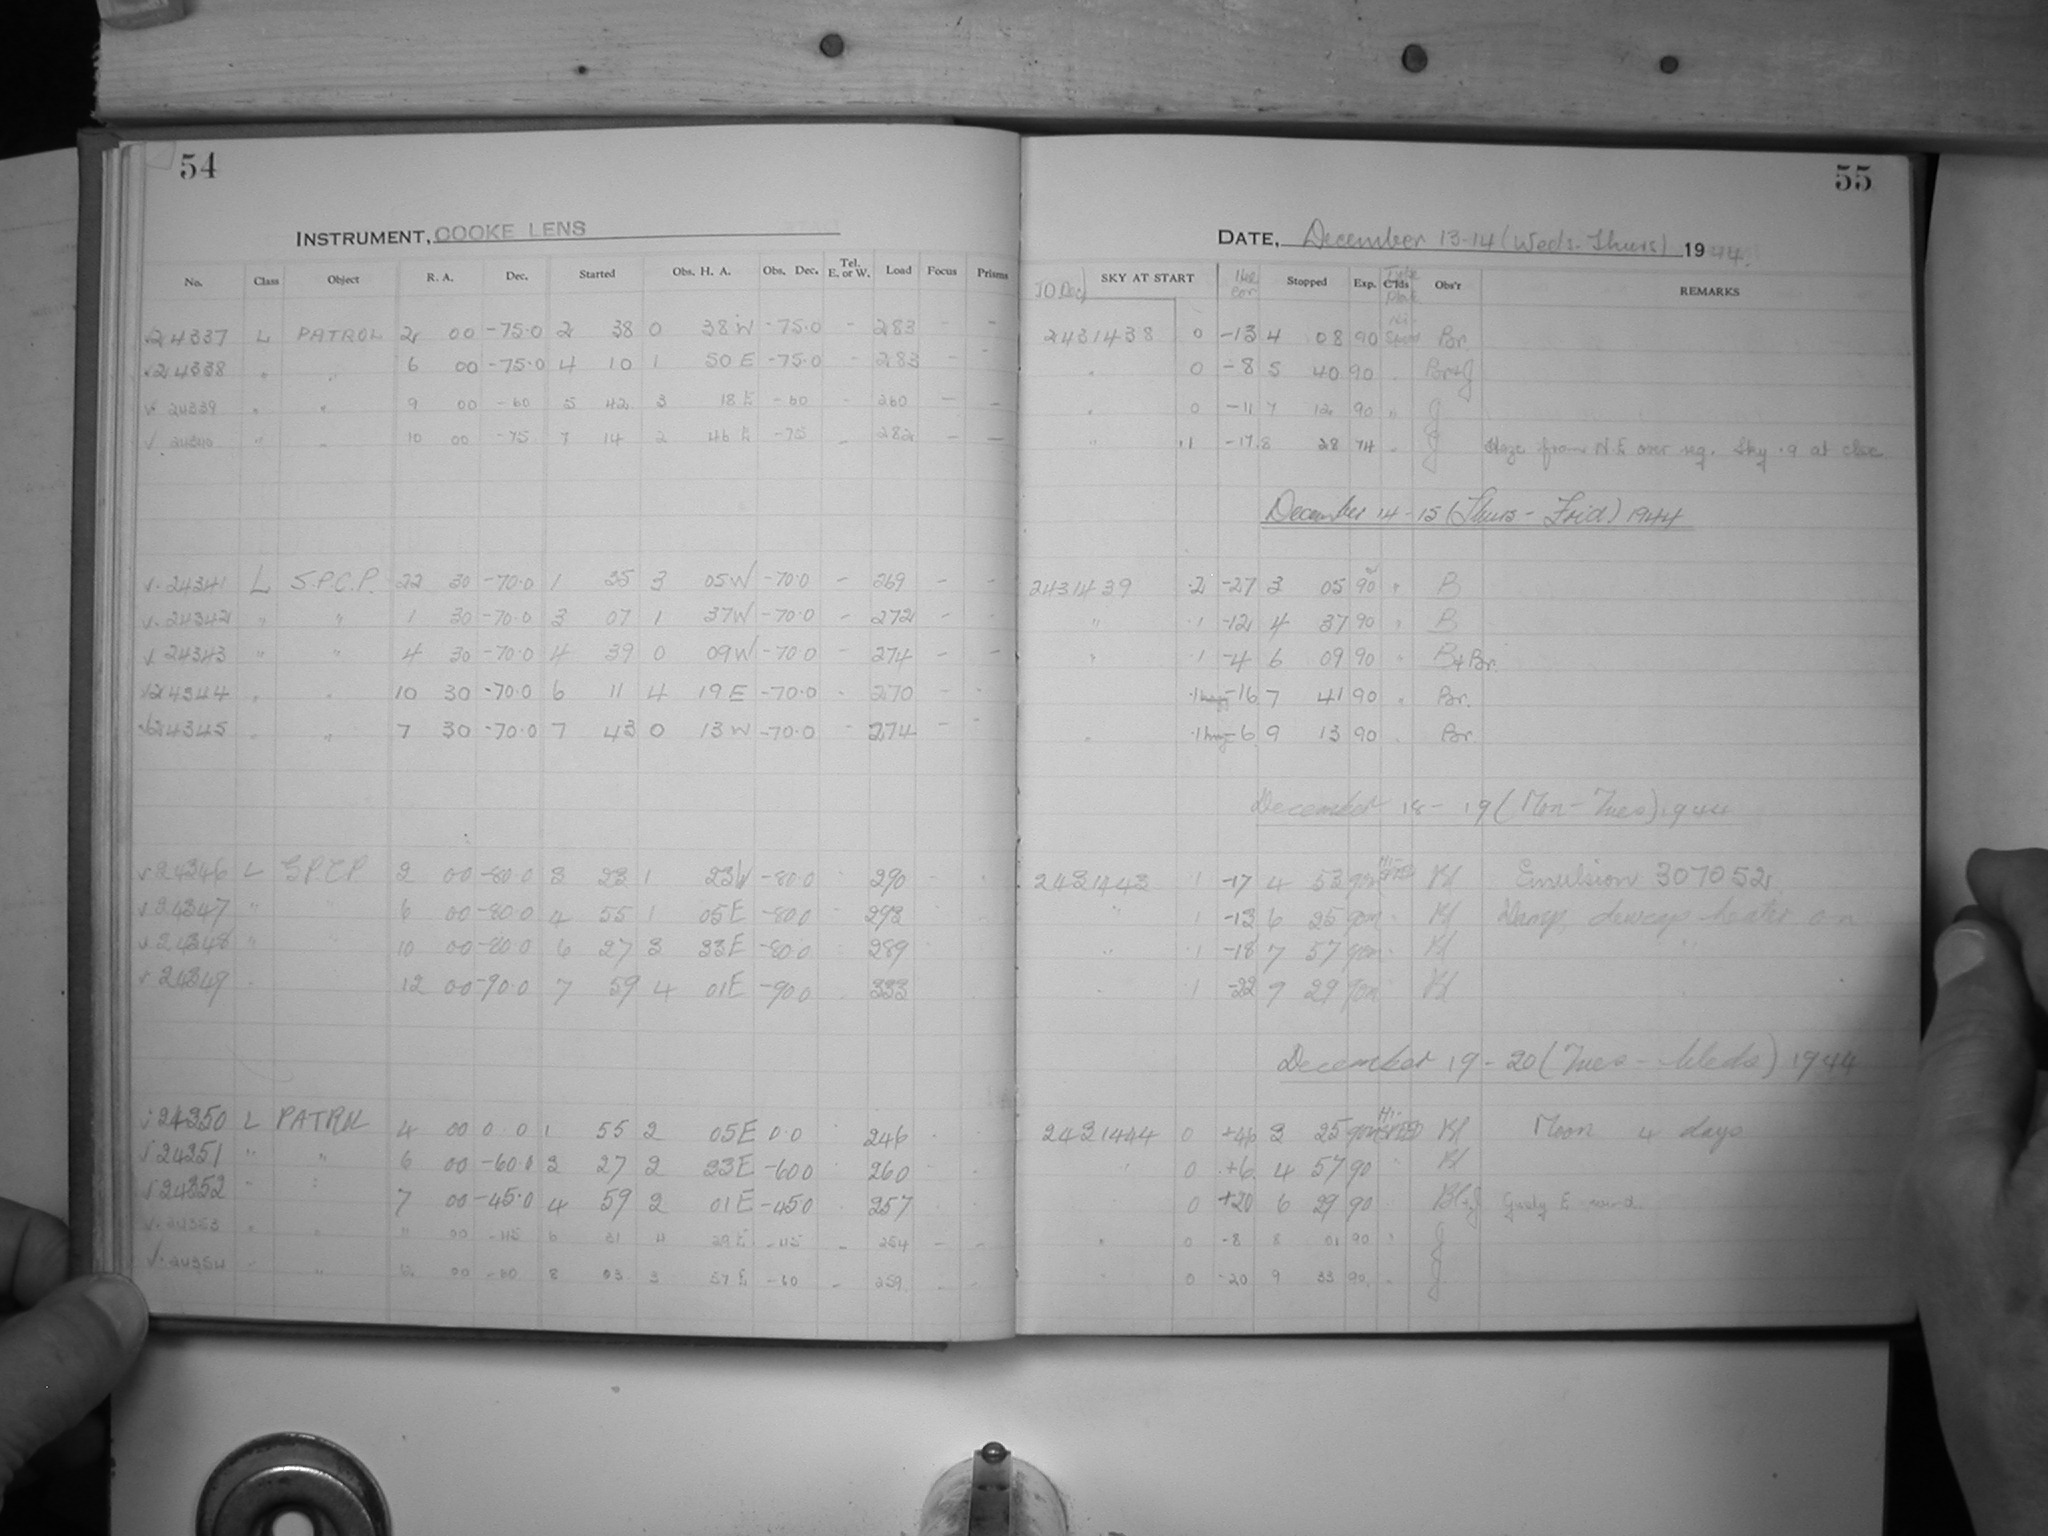 54
INSTRUMENT, COOKE LENS
No. Class Object R. A. Dec. Started Obs. H. A. Obs. Dec. Tel. E. or W. Load Focus Prisms
√24337 L PATROL 2 00 -75.0 2 38 0 38 W -75.0 - 283 - -
√24338 " " 6 00 -75.0 4 10 1 50 E -75.0 - 283 - -
√ 24339 " " 9 00 -60 5 42 3 18 E -60 - 260 - -
√ 24340 " " 10 00 -75 7 14 2 46 E -75 - 282 - -
√ 24341 L S.P.C.P. 22 30 -70.0 1 35 3 05 W -70.0 - 269 - -
√ 24342 " " 1 30 -70.0 3 07 1 37 W -70.0 - 272 - -
√ 24343 " " 4 30 -70.0 4 39 0 09 W -70.0 - 274 - -
√24344 " " 10 30 -70.0 6 11 4 19 E -70.0 - 270 - -
√24345 " " 7 30 -70.0 7 43 0 13 W -70.0 - 274 - -
√24346 L S.P.C.P. 2 00 -80.0 3 23 1 23W -80.0 290
√24347 " " 6 00 -80.0 4 55 1 05E -80.0 293
√24348 " " 10 00 -80.0 6 27 3 33E -80.0 289
√24349 12 00 -90.0 7 59 4 01E -90.0 333
√24350 L PATROL 4 00 0.0 1 55 2 05E 0.0 246
√24351 " " 6 00 -60.0 3 27 2 33E -60.0 260
√24352 " " 7 00 -45.0 4 59 2 01E -45.0 257
√ 24353 " " " 00 -45 6 31 " 29 E -45 - 254 - -
√ 24354 " " 00 -60 8 03 3 57 E -60 - 259 - -
55
DATE, December 13-14 (Weds-Thurs) 1944.
JD Dec SKY AT START Stopped Exp. C'lds Plate Obs'r REMARKS
2431438 0 -13 4 08 90 Br.
" 0 -8 5 40 90 " Br+J
" 0 -11 7 12 90 " J
" .1 -17 8 28 74 " J Haze from N.E over reg. Sky .9 at close
December 14-15 (Thurs-Frid) 1944
2431439 .2 -27 3 05 90 " B
" .1 -12 4 37 90 " B
" .1 -4 6 09 90 " B+Br.
.1 -16 7 41 90 " Br.
" .1 -6 9 13 90 " Br.
December 18-19 (Mon-Tues) 1944
2431443 1 -17 4 53 90m Hi-Speed Bl Emulsion 307052
" 1 -13 6 25 90m " Bl Damp, dewcap heater on
" .1 -18 7 57 90m " Bl "
" 1 -22 9 29 90m Bl
December 19-20 (Tues-Weds) 1944
2431444 0 +46 3 25 90m Hi-Speed Bl Moon 4 days
" 0 +6 4 57 90 " Bl
0 +20 6 29 90 " Bl+J Gusty E wind.
" 0 -8 8 01 90 " J
" 0 -20 9 33 90 " J